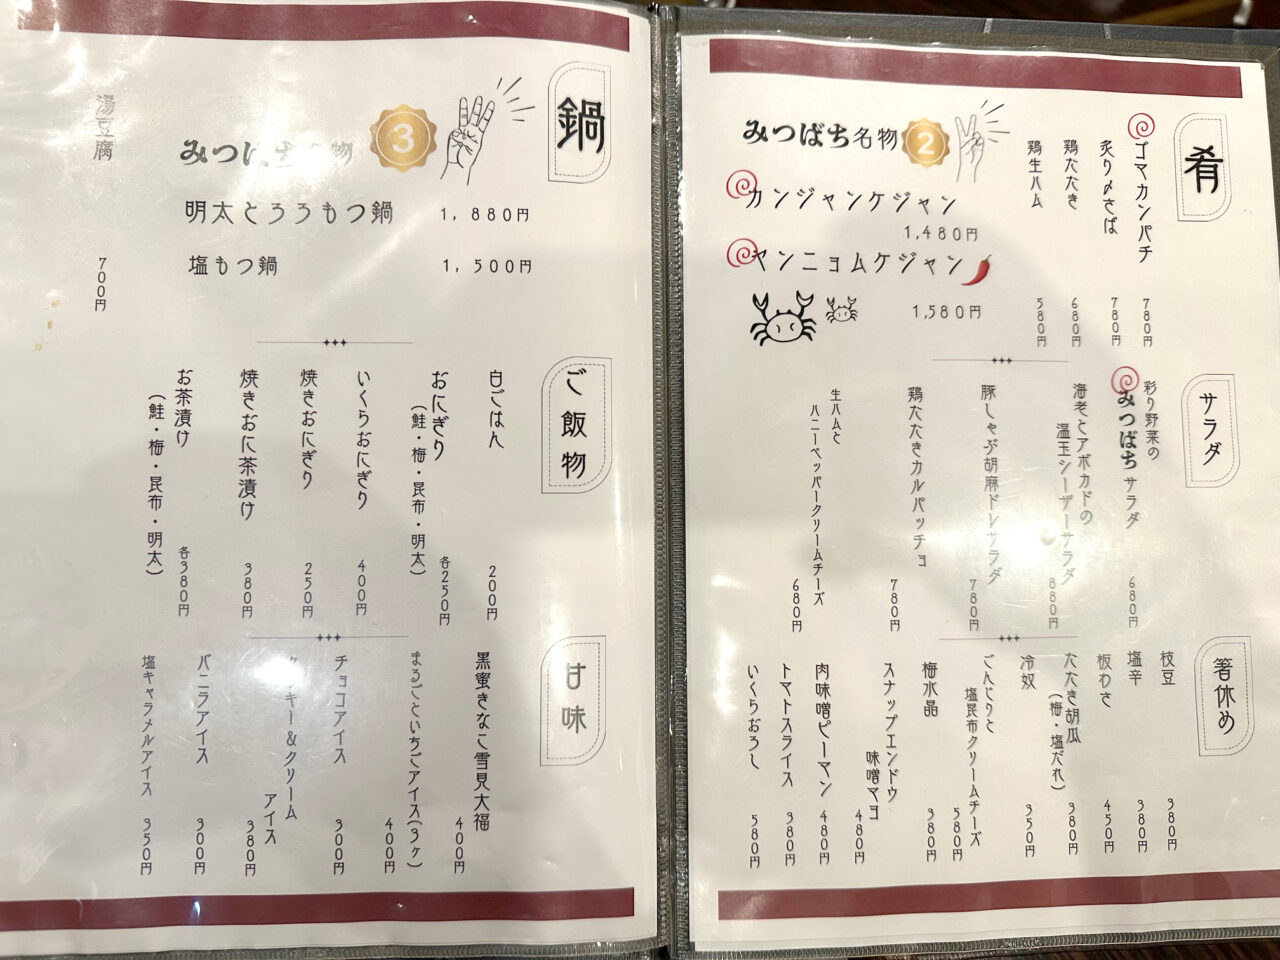 肴
ゴマカンパチ
780円
炙り〆さば
780円
鶏たたき
680円
鶏生ハム
580円
みつばち名物 2
カンジャンケジャン
1,480円
ヤンニョムケジャン
1,580円
サラダ
彩り野菜の
みつばちサラダ
680円
海老とアボカドの
温玉シーザーサラダ
880円
豚しゃぶ胡麻ドレサラダ
780円
鶏たたきカルパッチョ
780円
生ハムと
ハニーペッパークリームチーズ
680円
箸休め
枝豆
380円
塩辛
380円
板わさ
450円
たたき胡瓜
(梅・塩だれ)
380円
冷奴
350円
ごんじりと
塩昆布クリームチーズ
580円
梅水晶
380円
スナップエンドウ
味噌マヨ
480円
肉味噌ピーマン
480円
トマトスライス
380円
いくらおろし
580円
鍋
みつばち名物 3
明太とろろもつ鍋 1,880円
塩もつ鍋 1,500円
湯豆腐
700円
ご飯物
白ごはん
200円
おにぎり
(鮭・梅・昆布・明太)
各250円
いくらおにぎり
400円
焼きおにぎり
250円
焼きおに茶漬け
380円
お茶漬け
(鮭・梅・昆布・明太)
各380円
甘味
黒蜜きなこ雪見大福
400円
まるごといちごアイス(3ヶ)
400円
チョコアイス
300円
クッキー&クリーム
アイス
380円
バニラアイス
300円
塩キャラメルアイス
350円